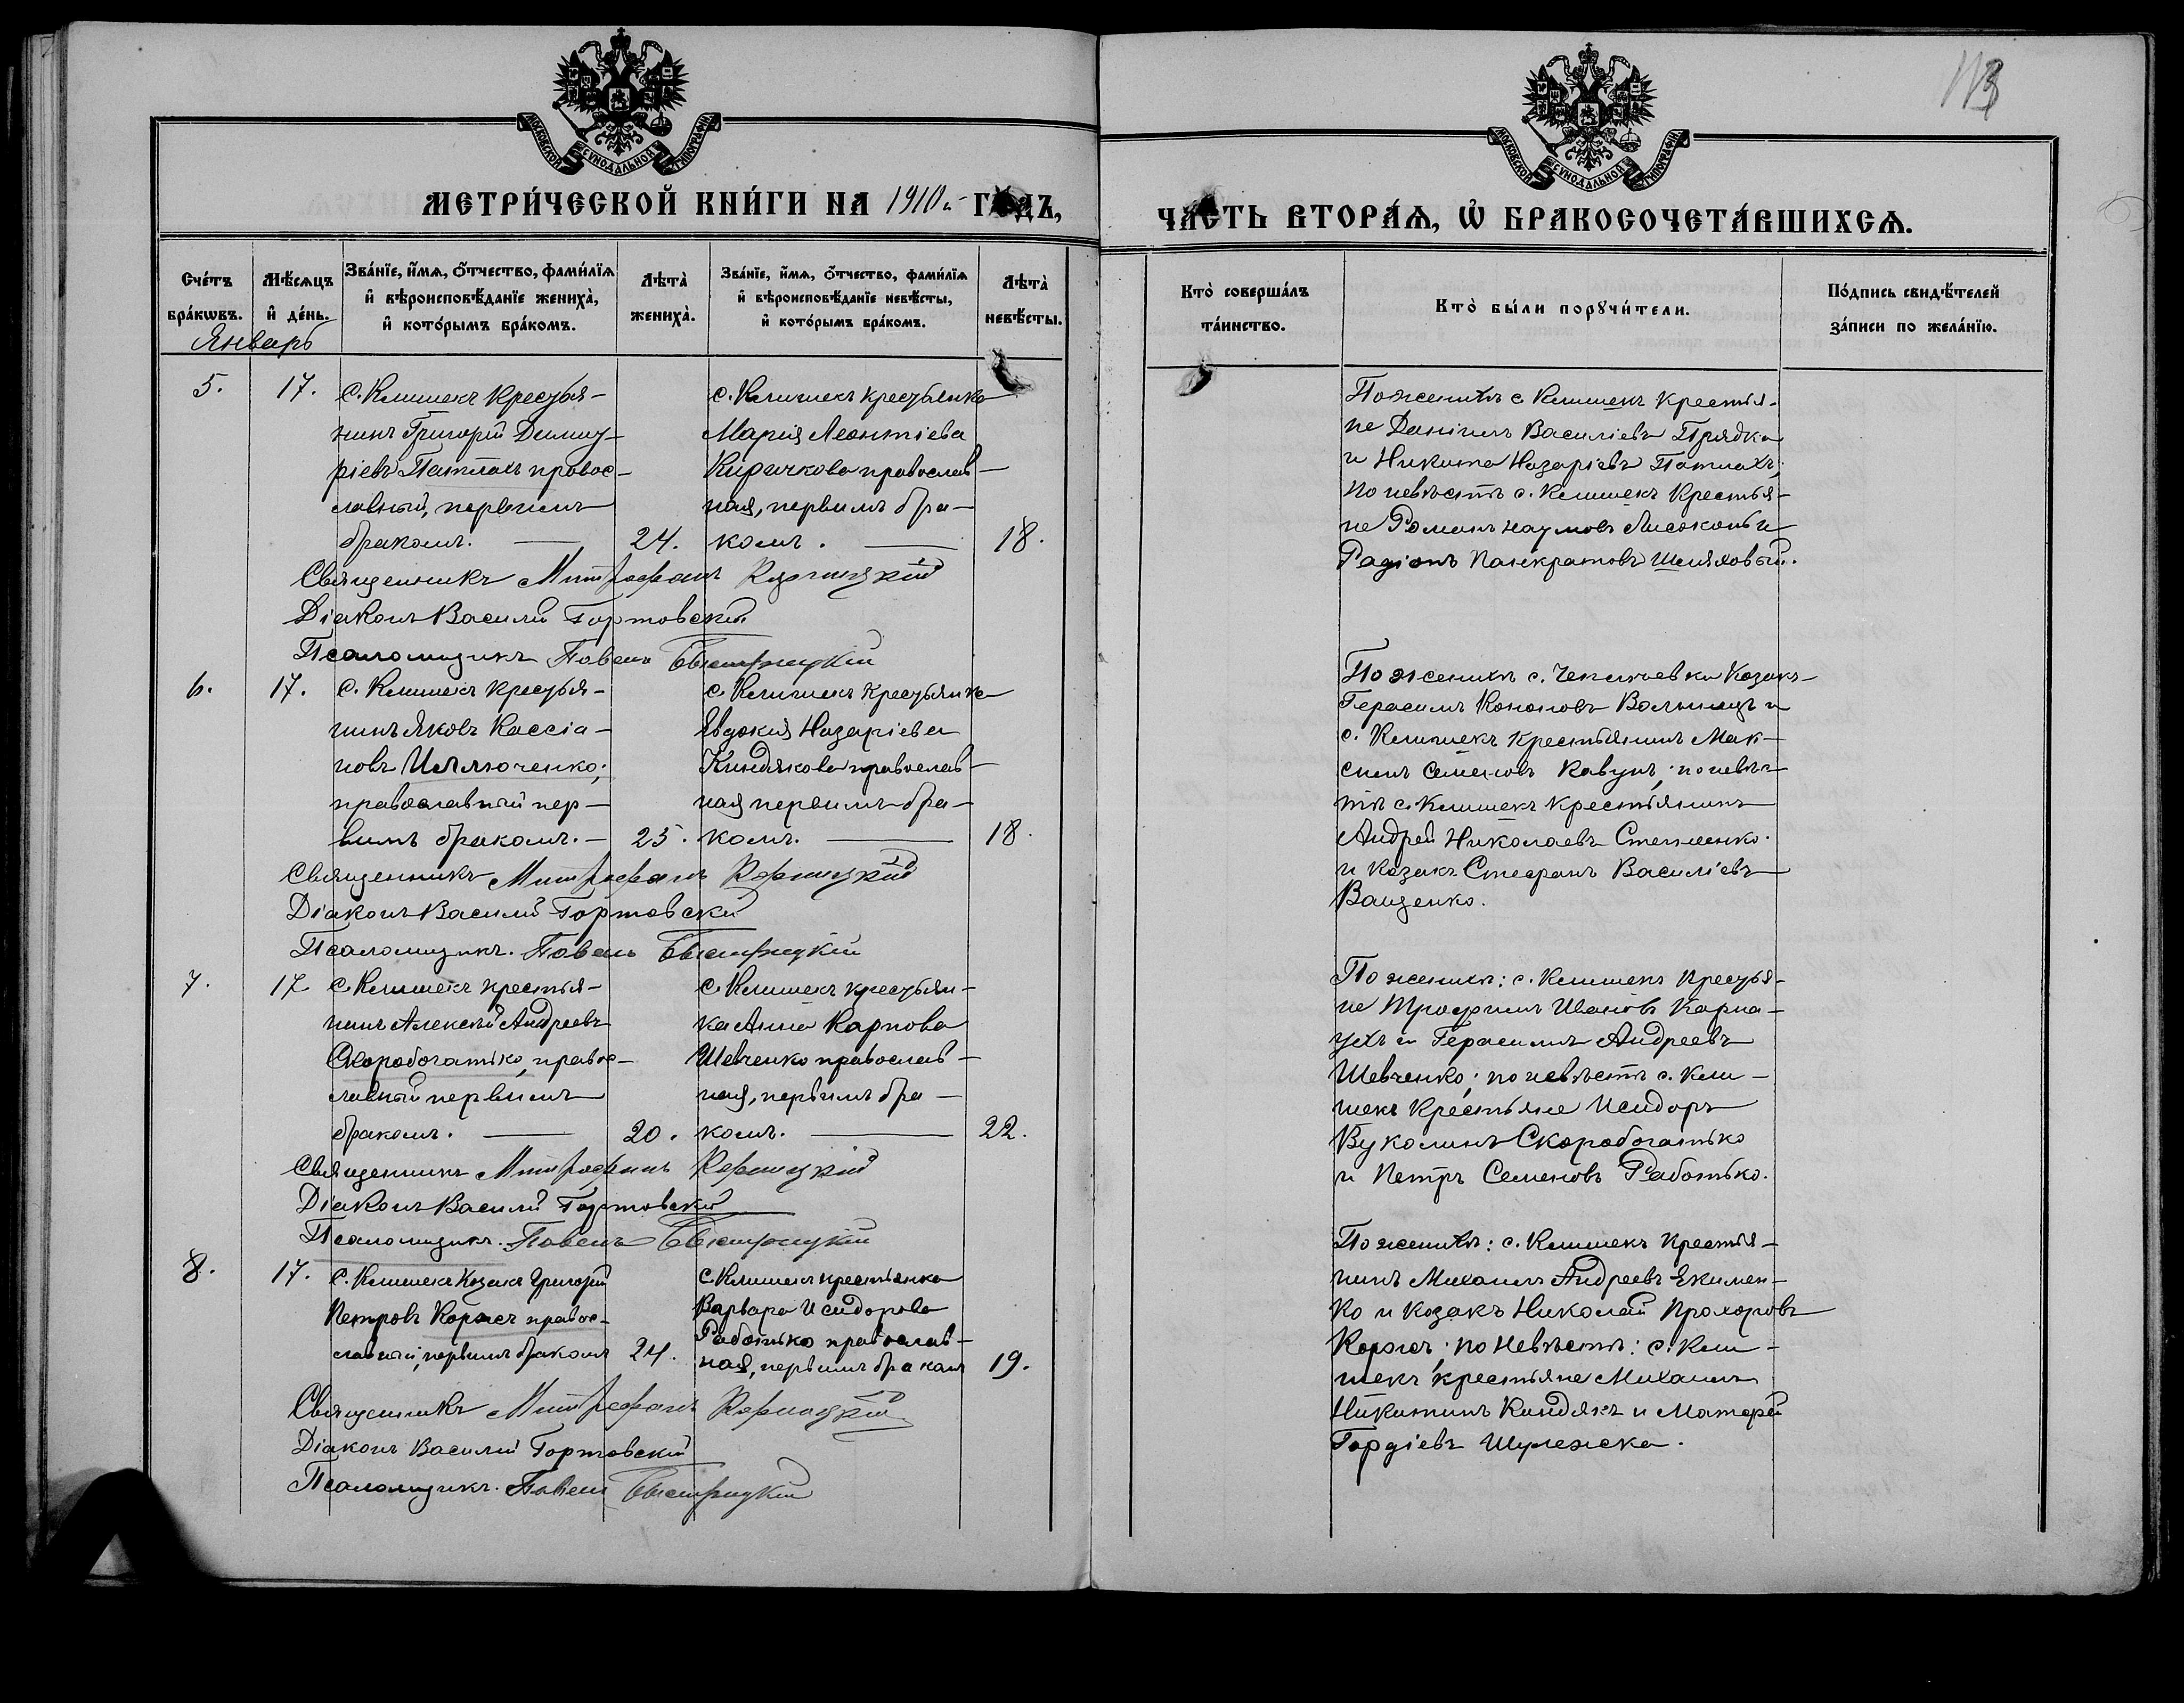 113
МОСКОВСКОЙ СѴНОДАЛЬНОЙ ТИПОГРАФІИ
МОСКОВСКОЙ СѴНОДАЛЬНОЙ ТИПОГРАФІИ
МЕТРИ́ЧЕСКОЙ КНИ́ГИ НА 1910 й ГОДЪ,
ЧА́СТЬ ВТОРА́Ѧ, Ѡ҆ БРАКОСОЧЕТА́ВШИХСѦ.
Сче́тъ бра́кѡвъ.
Мѣ́сѧцъ и҆ де́нь.
Зва́нїе, и҆́мѧ, ѻ҆́тчество, фами́лїѧ
и҆ вѣроисповѣ́данїе жениха̀,
и҆ кото́рымъ бра́комъ.
Лѣта̀ жениха̀.
Зва́нїе, и҆́мѧ, ѻ҆́тчество, фами́лїѧ
и҆ вѣроисповѣ́данїе невѣ́сты,
и҆ кото́рымъ бра́комъ.
Лѣта̀ невѣ́сты.
Кто̀ соверша́лъ
та́инство.
Кто̀ бы́ли порꙋчи́тели.
По́дпись свидѣ́телей
за́писи по жела́нїю.
Январь
5. 17.
с. Клишекъ крестья-
нинъ Григорій Димит-
ріевъ Патлахъ правос-
лавный, первымъ
бракомъ. — 24.
с. Клишекъ крестьянка
Марія Леонтіева
Киричкова православ-
ная, первымъ бра-
комъ. — 18.
Священникъ Митрофанъ
Діаконъ Василій Гортовскій
Псаломщикъ Павелъ Быстрицкій
По женихѣ с. Клишекъ крестья-
не Даніилъ Василіевъ Прядка
и Никита Назаріевъ Патлахъ;
по невѣстѣ с. Клишекъ крестья-
не Романъ Наумовъ Лисоконь и
Радіонъ Панкратовъ Шляховый.
6. 17.
с. Клишекъ крестья-
нинъ Яковъ Кассіа-
новъ Иллюченко;
православный пер-
вымъ бракомъ. — 25.
с. Клишекъ крестьянка
Евдокія Назаріева
Киндякова православ-
ная первымъ бра-
комъ. — 18.
Священникъ Митрофанъ
Діаконъ Василій Гортовскій
Псаломщикъ. Павелъ Быстрицкій
По женихѣ с. Чепличевки козакъ
Герасимъ Кононовъ Волынецъ и
с. Клишекъ крестьянинъ Мак-
симъ Семеновъ Кавунъ; по невѣс-
тѣ с. Клишекъ крестьянинъ
Андрей Николаевъ Стельенко
и козакъ Стефанъ Василіевъ
Ващенко.
7. 17
с. Клишекъ крестья-
нинъ Алексѣй Андреевъ
Скоробогатько, правос-
лавный первымъ
бракомъ. — 20.
с. Клишекъ крестьян-
ка Анна Карпова
Шевченко православ-
ная, первымъ бра-
комъ. — 22.
Священникъ Митрофанъ
Діаконъ Василій Гортовскій
Псаломщикъ. Павелъ Быстрицкій
По женихѣ: с. Клишекъ крестья-
не Трофимъ Ивановъ Карна-
ухъ и Герасимъ Андреевъ
Шевченко; по невѣстѣ с. Кли-
шекъ крестьяне Исидоръ
Вуколинъ Скоробогатько
и Петръ Семеновъ Работько.
8. 17.
с. Клишекъ козакъ Григорій
Петровъ Коржъ правос-
лавный, первымъ бракомъ 24.
с. Клишекъ крестьянка
Варвара Исидорова
Работько православ-
ная, первымъ бракомъ 19.
Священникъ Митрофанъ
Діаконъ Василій Гортовскій
Псаломщикъ. Павелъ Быстрицкій
По женихѣ: с. Клишекъ крестья-
нинъ Михаилъ Андреевъ Екимен-
ко и козакъ Николай Прохоровъ
Коржъ; по невѣстѣ: с. Кли-
шекъ крестьяне Михаилъ
Никитинъ Киндякъ и Матфей
Гордіевъ Шулежка.